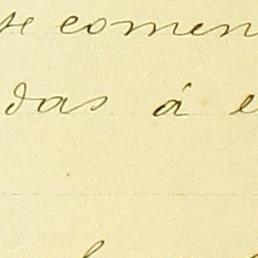 se comen
das á e